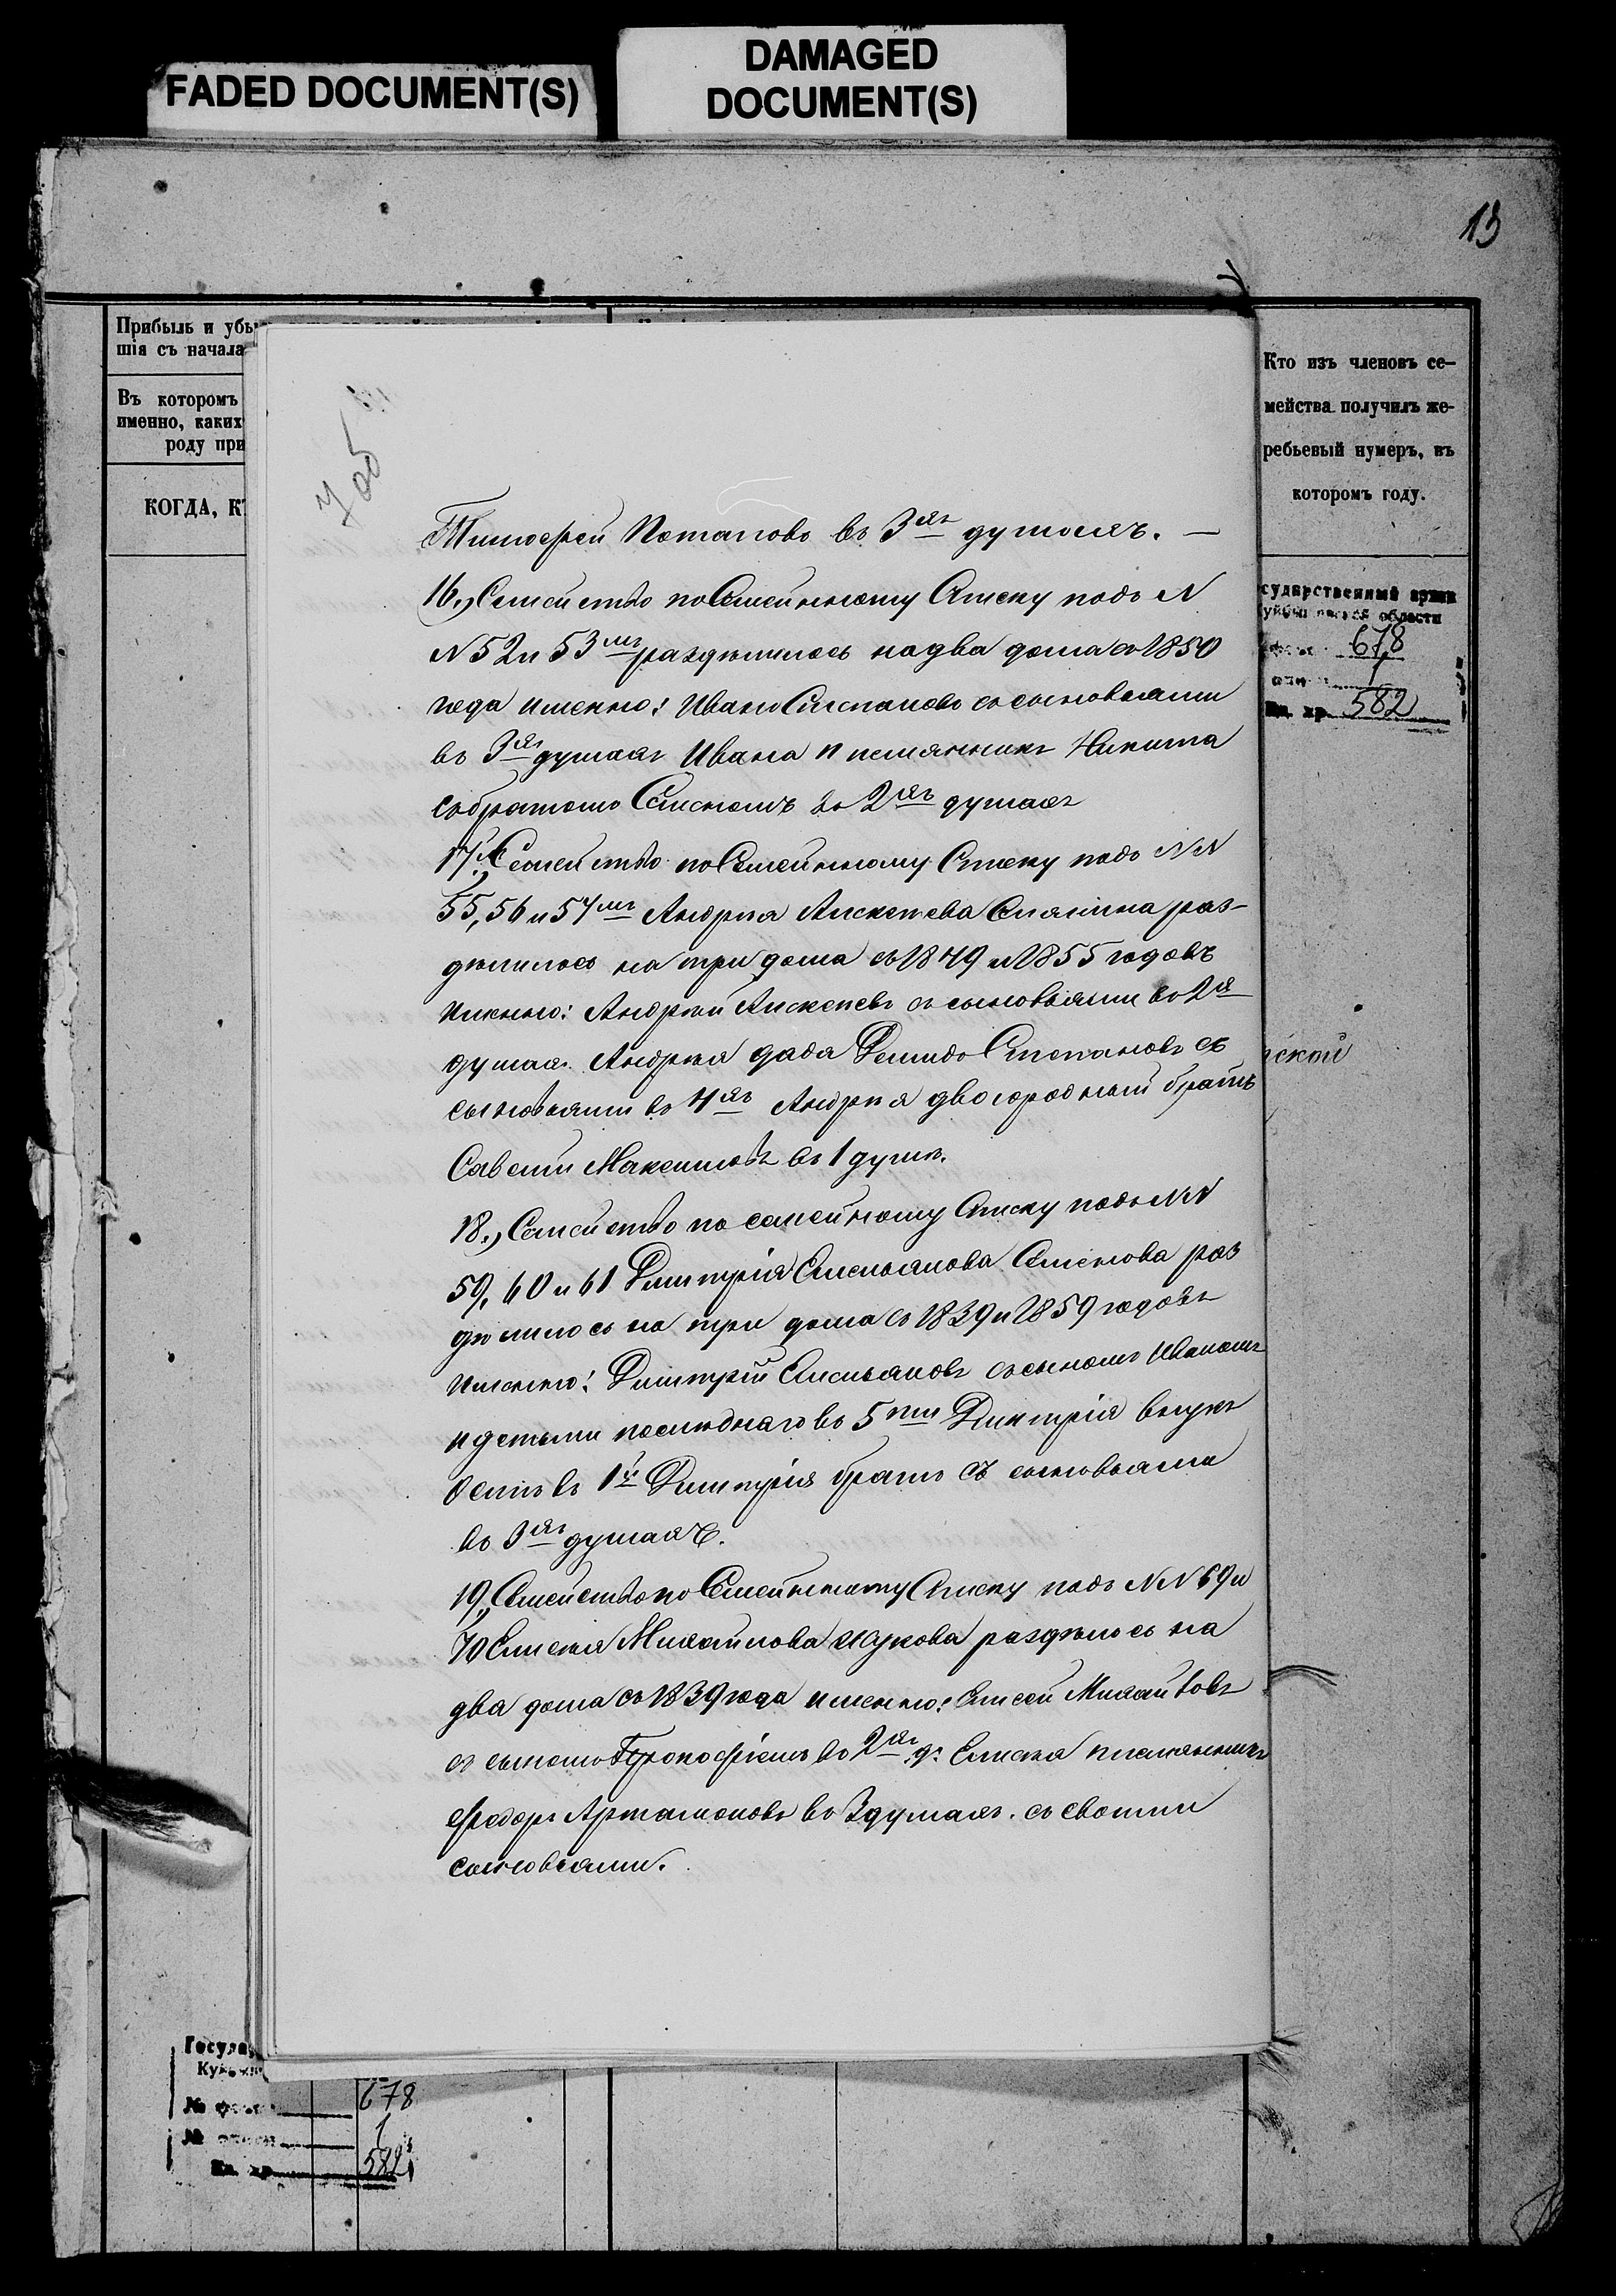 FADED DOCUMENT(S)
DAMAGED
DOCUMENT(S)
13
Прибыль и убы
шія съ начала
Въ которомъ
именно, каких
роду при
КОГДА, К
Кто изъ членовъ се-
мейства получилъ же-
ребьевый нумеръ, въ
которомъ году.
678
1
582
ской
Тимофей Потаповъ въ 3хъ душахъ. —
16.) Семейство по Семейному Списку подъ N
N 52 и 53мъ раздѣлилось на два дома съ 1850
года именно: Иванъ Степановъ съ сыновьями
въ 3хъ душахъ Ивана племянникъ Никита
съ братомъ Семеномъ въ 2хъ душахъ
17.) Семейство по Семейному Списку подъ NN
55, 56 и 57мъ Андрея Алексеева раз-
дѣлилось на три дома съ 1849 и 1855 годовъ
именно: Андрей Алексеевъ съ сыновьями въ 2хъ
душахъ Андрея дядя Демидъ Степановъ съ
сыновьями въ 4хъ Андрея двоюродный братъ
Савелій Максимовъ въ 1 душѣ.
18.) Семейство по семейному Списку подъ NN
59, 60 и 61 Дмитрія Емельянова Семенова раз
дѣлилось на три дома съ 1839 и 1859 годовъ
именно: Дмитрій Емельяновъ съ сыномъ Иваномъ
и детьми последнаго въ 5ти Дмитрія внукъ
въ 1й Дмитрія братъ съ сыновьями
въ 3хъ душахъ.
19.) Семейство по Семейному Списку подъ NN 69 и
70 Елисея Михайлова Жукова раздѣлось на
два дома съ 1839 года именно: Елисей Михайловъ
съ сыномъ Прокофіемъ въ 2хъ д. Елисея племянникъ
Федоръ Артамоновъ въ 3 душахъ съ своими
сыновьями.
678
1
582